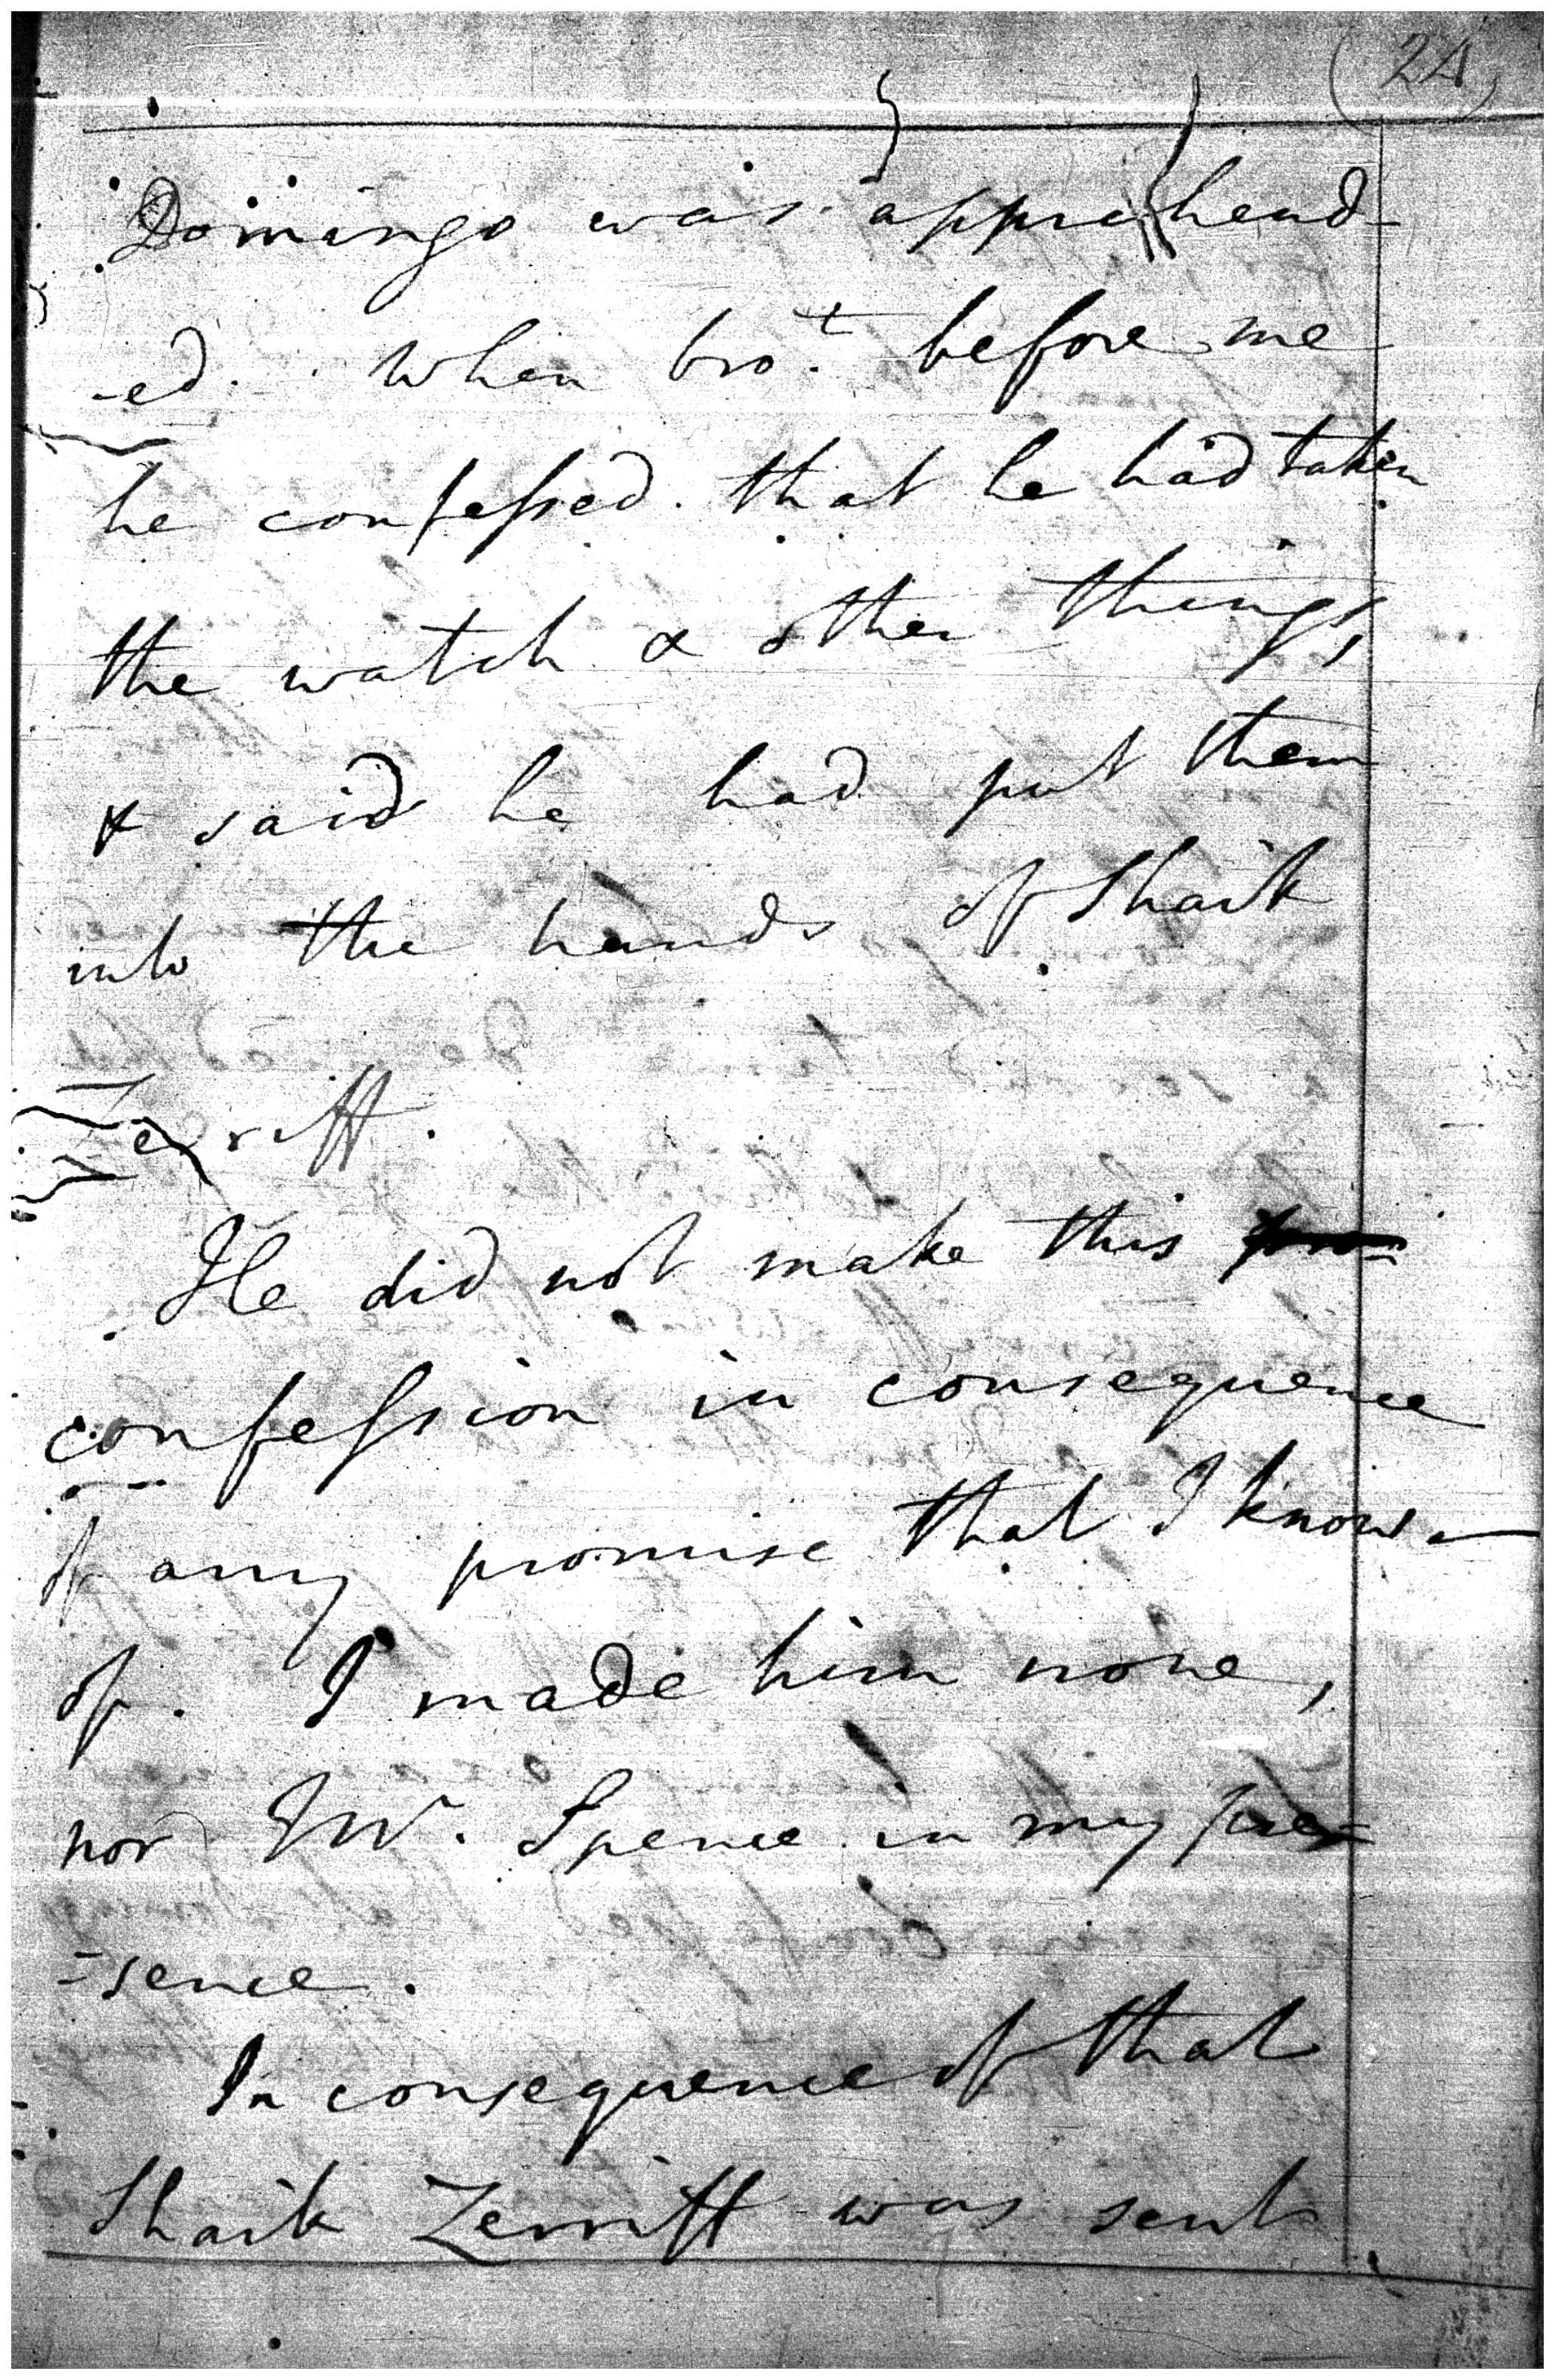 (24)
Domingo was apprehend-
-ed. When bro.t before me
he confessed. that he had taken
the watch & other things,
& said he had put them
into the hands of Shaik
Zerriff.
He did not make this
confession in consequence
of any promise that I know
of. I made him none,
nor Mr. Spence in my pre=
=sence.
In consequence of that
Shaik Zerriff was sent